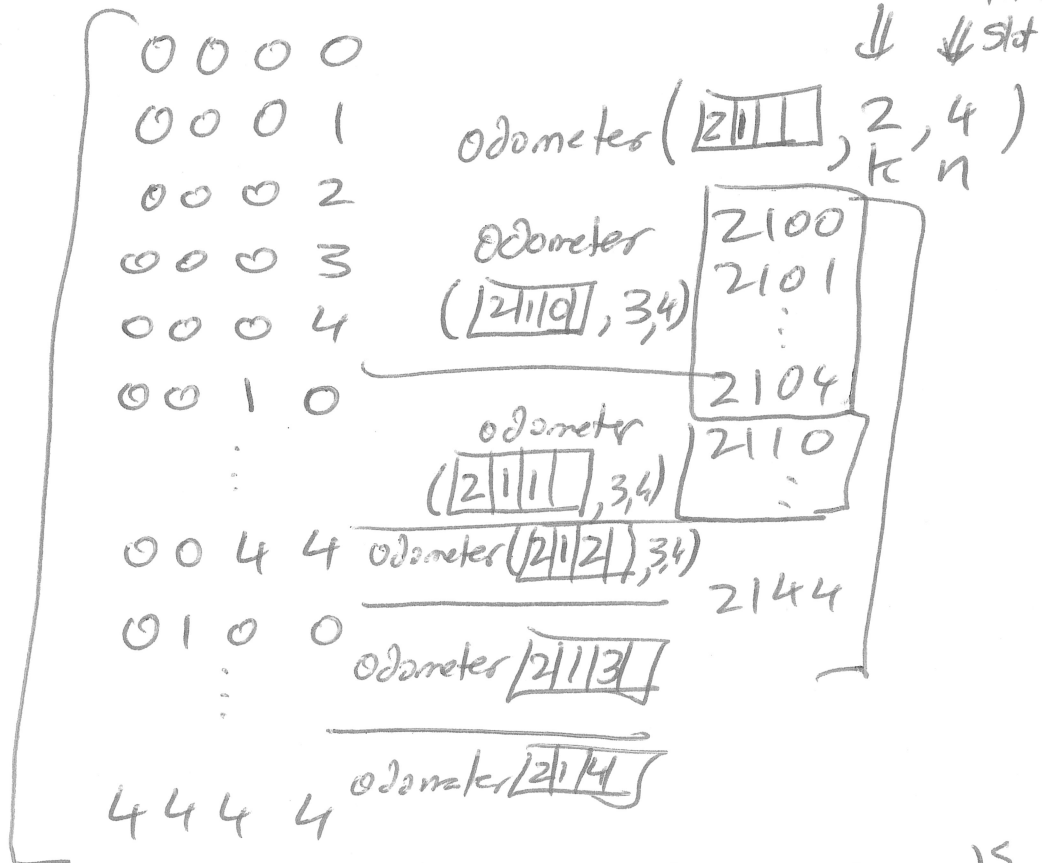 0 0 0 0
0 0 0 1
0 0 0 2
0 0 0 3
0 0 0 4
0 0 1 0
⋮
0 0 4 4
0 1 0 0
⋮
4 4 4 4
⇓ ⇓ slot
odometer ( |2|1| | |, 2, 4 )
k n
odometer
( |2|1|0| |, 3,4)
2100
2101
⋮
2104
odometer
( |2|1|1| |, 3,4)
2110
⋮
odometer( |2|1|2| |, 3,4)
2144
odometer |2|1|3| |
odometer |2|1|4| |